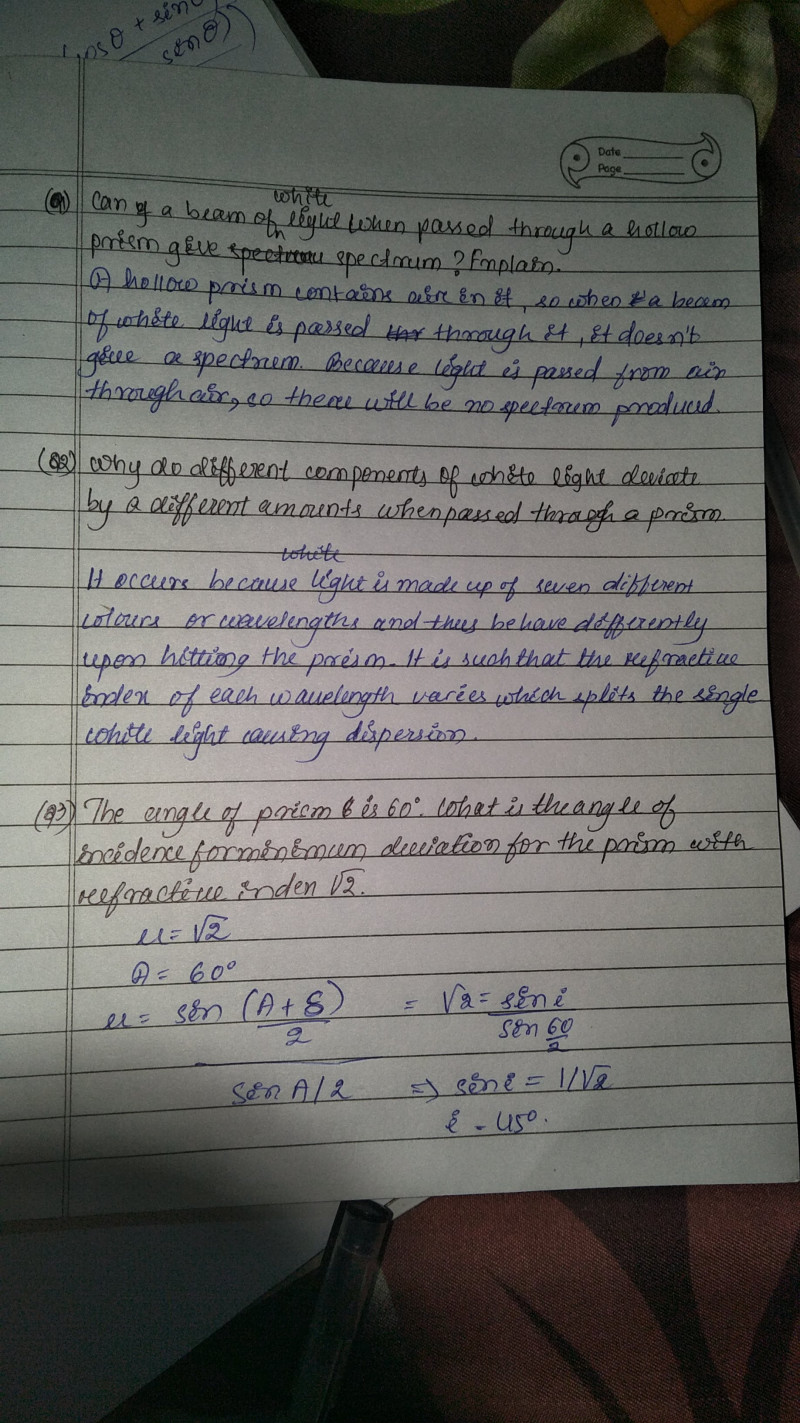 cosθ + sinθ
sinθ
Date
Page
(Q1) Can a beam of white light when passed through a hollow
prism give spectrum? Explain.
A hollow prism contains air in it, so when a beam
of white light is passed through it, it doesn't
give a spectrum. Because light is passed from air
through air, so there will be no spectrum produced.
(Q2) Why do different components of white light deviate
by a different amounts when passed through a prism.
white
It occurs because light is made up of seven different
colours or wavelengths and thus behave differently
upon hitting the prism. It is such that the refractive
index of each wavelength varies which splits the single
white light causing dispersion.
(Q3) The angle of prism is 60°. What is the angle of
incidence for minimum deviation for the prism with
refractive index √2.
μ = √2
A = 60°
μ = sin (A + δ)/2 = √2 = sin i
sin 60/2
sin A/2 ⇒ sin i = 1/√2
i = 45°.